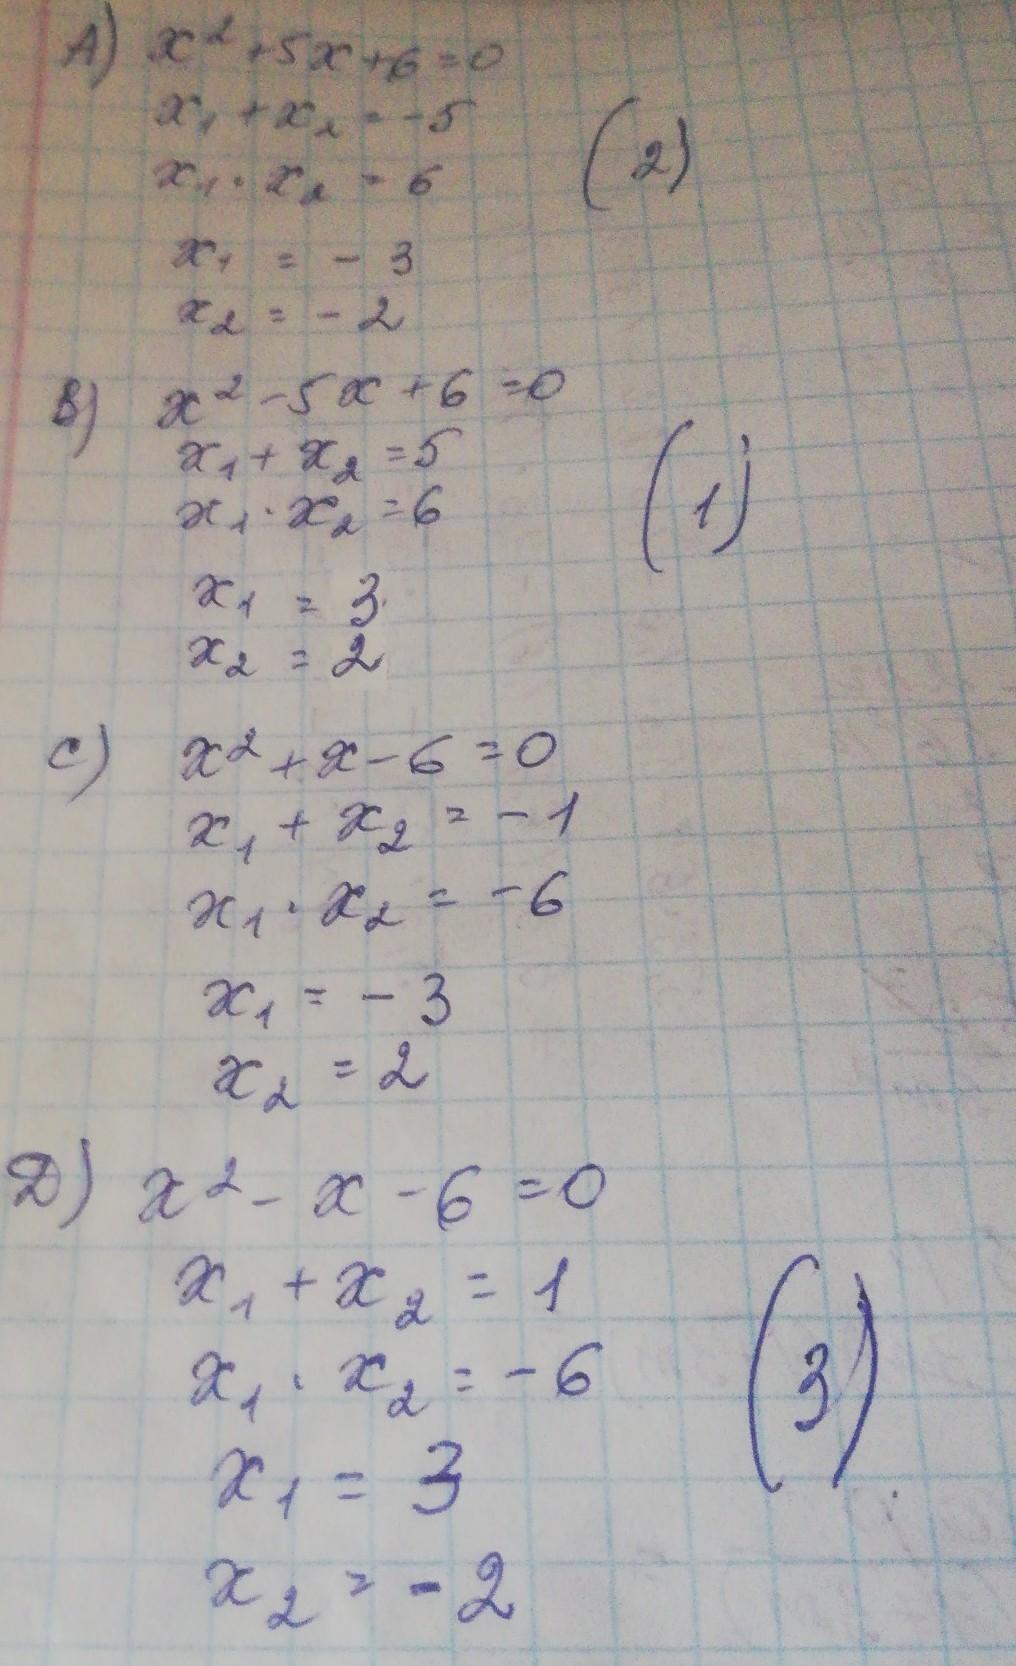 A) x² + 5x + 6 = 0
x₁ + x₂ = -5
x₁ · x₂ = 6
(2)
x₁ = -3
x₂ = -2
B) x² - 5x + 6 = 0
x₁ + x₂ = 5
x₁ · x₂ = 6
(1)
x₁ = 3
x₂ = 2
C) x² + x - 6 = 0
x₁ + x₂ = -1
x₁ · x₂ = -6
x₁ = -3
x₂ = 2
D) x² - x - 6 = 0
x₁ + x₂ = 1
x₁ · x₂ = -6
(3)
x₁ = 3
x₂ = -2